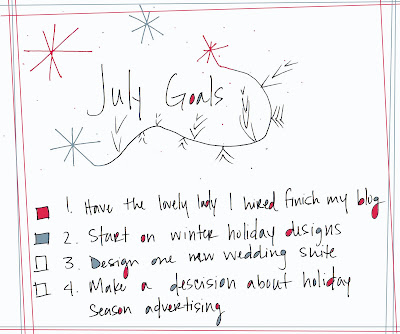 July Goals
1. Have the lovely lady I hired finish my blog
2. Start on winter holiday designs
3. Design one new wedding suite
4. Make a descision about holiday
season advertising